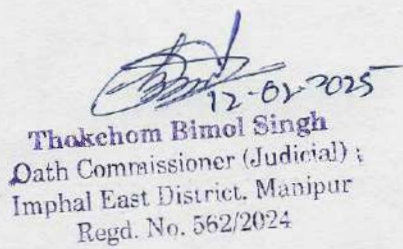 12-02-2025
Thokchom Bimol Singh
Oath Commissioner (Judicial) ;
Imphal East District, Manipur
Regd. No. 562/2024